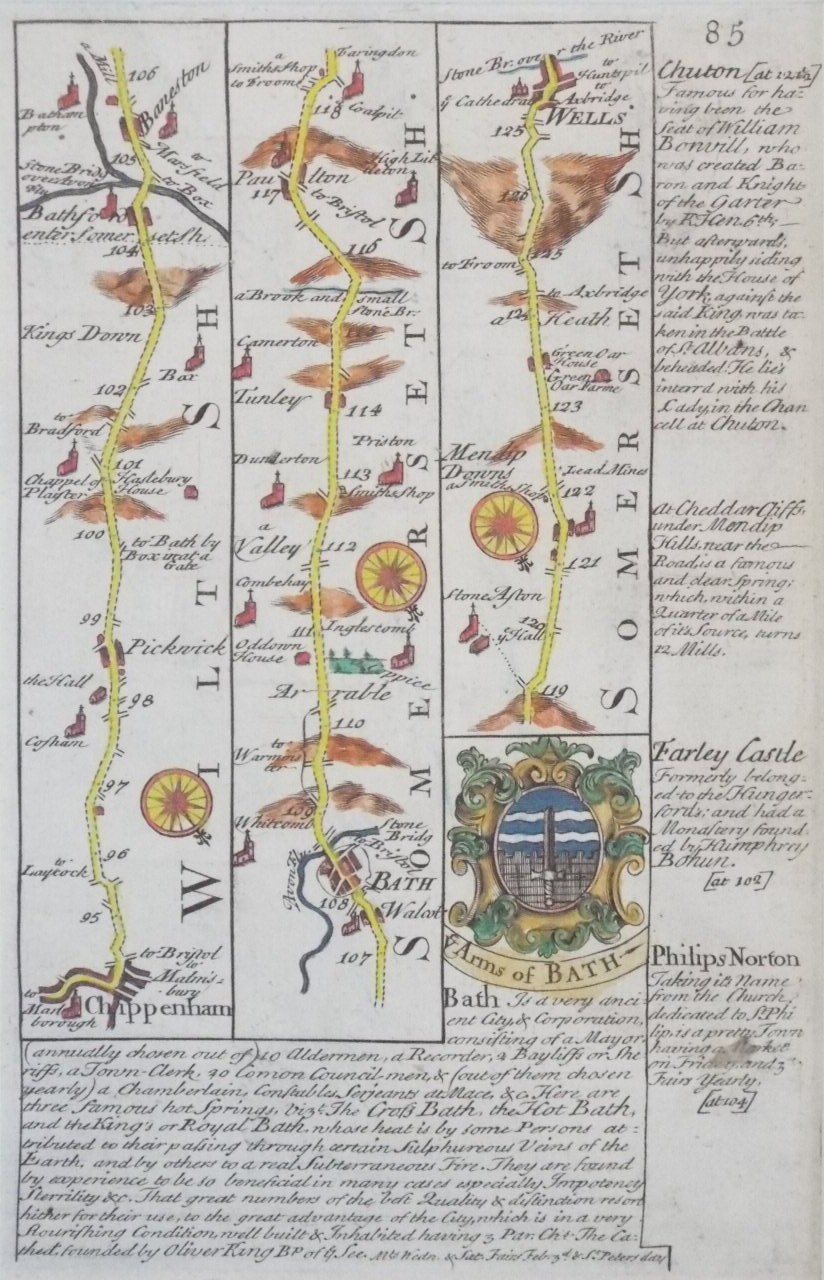 85
a Mill
106
Baneston
Batham
pton
105
to
Marsfield
to Box
Stone Bridg
Bathford
enter Somersetsh.
104
103
Kings Down
Box
102
to
Bradford
101
Chappel of
Playster
Haslebury
House
100
to Bath by
Box in at a
Gate
99
Pickwick
the Hall
98
Cosham
97
96
to
Laycock
95
to Bristol
to
Malms-
bury
to
Marl
borough
Chippenham
WILTSH
Faringdon
a
Smiths Shop
to Froom
118
Coalpit
High Lit
tleton
Paulton
117
to Bristol
116
a Brook and small
Stone Br.
115
Camerton
Tunley
114
Priston
Dunkerton
113
Smiths Shop
a
Valley
112
Combehay
111
Inglescomb
Oddown
House
Coppice
Arrable
110
to
Warmins
ter
109
Whitcomb
Stone
Bridg
to Bristol
Avon fl
BATH
108
Walcot
107
SOMERSETSH.
Stone Br. over the River
to
Huntspil
to
Axbridge
y Cathedral
WELLS
125
126
125
to Froom
to Axbridge
124
a Heath
Green Oar
House
Green
Oar Farme
123
Mendip
Downs
Lead Mines
a Smiths Shop
122
121
Stone Aston
120
y Hall
119
SOMERSETSH.
y Arms of BATH
Chuton [at 121½]
Famous for ha-
ving been the
Seat of William
Bonvill, who
was created Ba-
ron and Knight
of the Garter
by K. Hen. 6th
But afterwards,
unhappily siding
with the House of
York, against the
said King, was ta-
ken in the Battle
of St. Albans, &
beheaded. He lies
interr'd with his
Lady, in the Chan
cell at Chuton.
At Cheddar Cliffs,
under Mendip
Hills, near the
Road, is a famous
and clear Spring;
which, within a
Quarter of a Mile
of it's Source, turns
12 Mills.
Farley Castle
Formerly belong-
ed to the Hunger-
fords; and had a
Monastery found
ed by Humphrey
Bohun.
[at 102]
Philips Norton
Taking it's Name
from the Church,
dedicated to St. Phi
lip, is a pretty Town
having a Market
on Friday, and 3
Fairs Yearly.
[at 104]
Bath Is a very anci-
ent City, & Corporation,
consisting of a Mayor
(annually chosen out of) 10 Aldermen, a Recorder, 2 Bayliffs or She
riffs, a Town-Clerk, 20 Comon Council-men, & (out of them chosen
yearly) a Chamberlain, Constables, Serjeants at Mace, &c. Here are
three famous hot Springs, vizt. The Cross Bath, the Hot Bath,
and the King's or Royal Bath, whose heat is by some Persons at-
tributed to their passing through certain Sulphureous Veins of the
Earth, and by others to a real Subterraneous Fire. They are found
by experience to be so beneficial in many cases especially Impotency
Sterrility &c. That great numbers of the best Quality & distinction resort
hither for their use, to the great advantage of the City, which is in a very
flourishing Condition, well built & Inhabited having 3 Par. Chs. The Ca-
thed. founded by Oliver King Bp. of y See. Mts. Wedn. & Sat. Fairs Feb. 3d. & St. Peters day